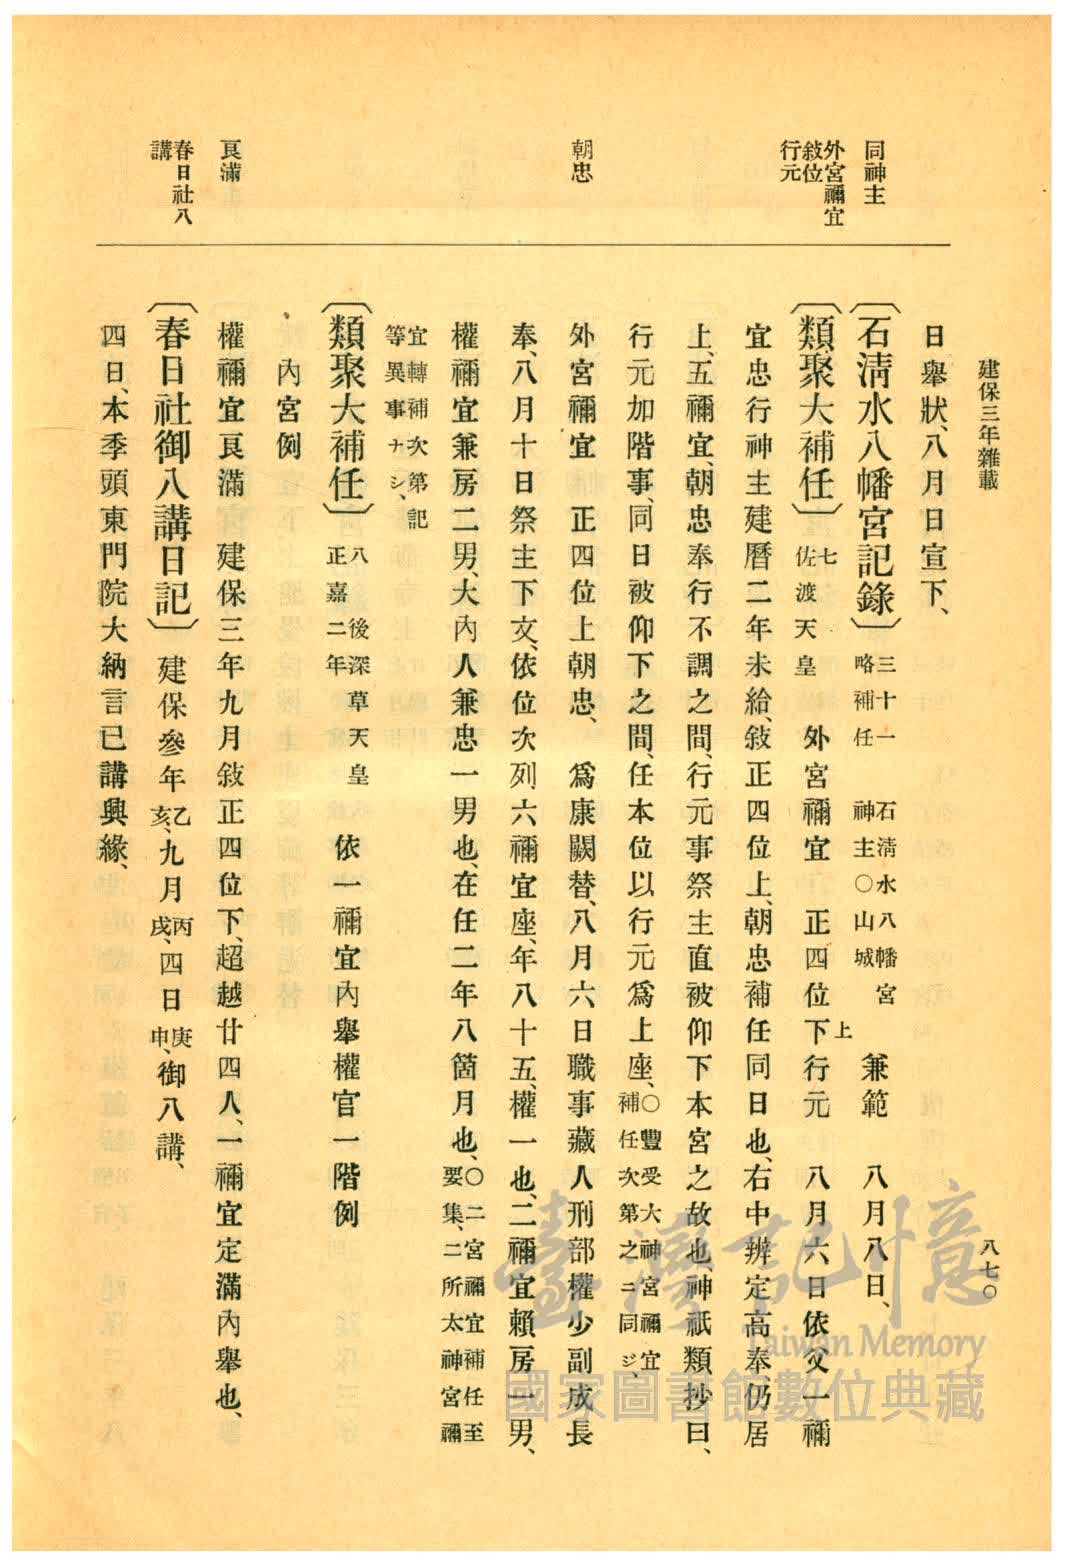 建保三年雜載
八七〇
同神主
外宮禰宜
敍位
行元
朝忠
良滿
春日社八
講
日舉狀、八月日宣下、
〔石淸水八幡宮記錄〕三十一 略補任 石淸水八幡宮 神主〇山城 兼範 八月八日、
〔類聚大補任〕七 佐渡天皇 外宮禰宜 正四位下上行元 八月六日依父一禰
宜忠行神主建曆二年未給、敍正四位上、朝忠補任同日也、右中辨定高奉、仍居
上、五禰宜、朝忠奉行不調之間、行元事祭主直被仰下本宮之故也、神祇類抄曰、
行元加階事、同日被仰下之間、任本位以行元爲上座、〇豐受大神宮禰宜 補任次第之ニ同ジ、
外宮禰宜 正四位上朝忠、 爲康闕替、八月六日職事藏人刑部權少副成長
奉、八月十日祭主下文、依位次列六禰宜座、年八十五、權一也、二禰宜賴房一男、
權禰宜兼房二男、大內人兼忠一男也、在任二年八箇月也、〇二宮禰宜補任至 要集、二所太神宮禰
宜轉補次第記
等異事ナシ、
〔類聚大補任〕八 後深草天皇 正嘉二年 依一禰宜內舉權官一階例
內宮例
權禰宜良滿 建保三年九月敍正四位下、超越廿四人、一禰宜定滿內舉也、
〔春日社御八講日記〕 建保參年乙亥、九月丙戌、四日庚申、御八講、
四日、本季頭東門院大納言已講興緣、
臺灣記憶
Taiwan Memory
國家圖書館數位典藏